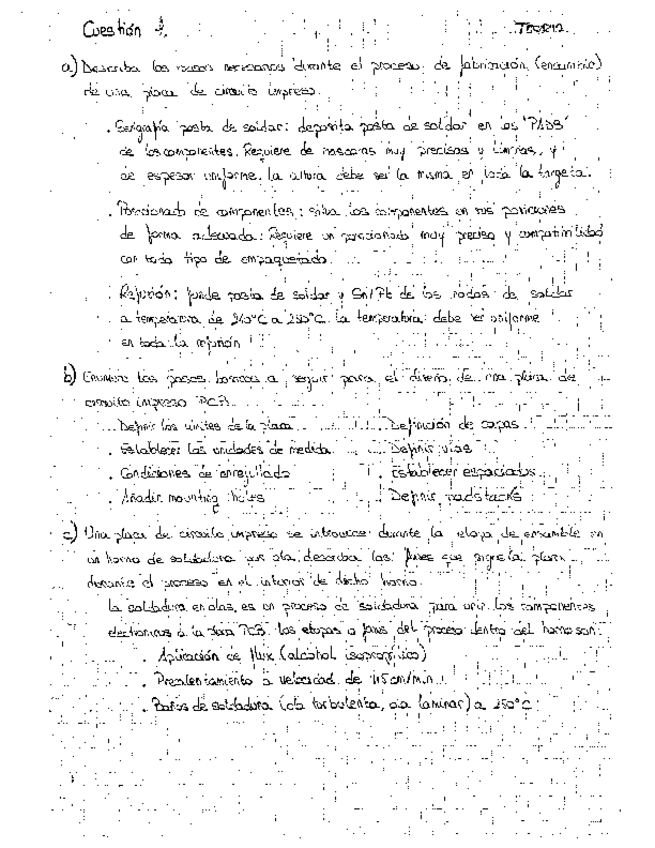 Cuestión 1. TEORIA
a) Describa los pasos necesarios durante el proceso de fabricación (ensamble)
de una placa de circuito impreso.
. Serigrafía pasta de soldar: deposita pasta de soldar en los "PADS"
de los componentes. Requiere de mascaras muy precisas y limpias, y
de espesor uniforme. La altura debe ser la misma en toda la targeta.
. Posicionado de componentes: situa los componentes en sus posiciones
de forma adecuada. Requiere un posicionado muy preciso y compatibilidad
con todo tipo de empaquetado.
. Refusión: funde pasta de soldar y Sn/Pb de los nodos de soldar
a temperatura de 240°C a 250°C. La temperatura debe ser uniforme
en toda la refusión
b) Enumere los pasos básicos a seguir para el diseño de una placa de
circuito impreso PCB.
. Definir los límites de la placa . Definición de capas
. Establecer las unidades de medida . Definir vias
. Condiciones de enrejillado . Establecer espaciados
. Añadir mounting holes . Definir padstacks
c) Una placa de circuito impreso se introduce durante la etapa de ensamble en
un horno de soldadura por ola, describa las fases que sigue la placa
durante el proceso en el interior de dicho horno.
La soldadura en olas, es un proceso de soldadura para unir los componentes
electronicos a la placa PCB. Las etapas o fases del proceso dentro del horno son:
. Aplicación de flux (alcohol isopropílico)
. Precalentamiento a velocidad de 115cm/min
. Baños de soldadura (ola turbulenta, ola laminar) a 250°C